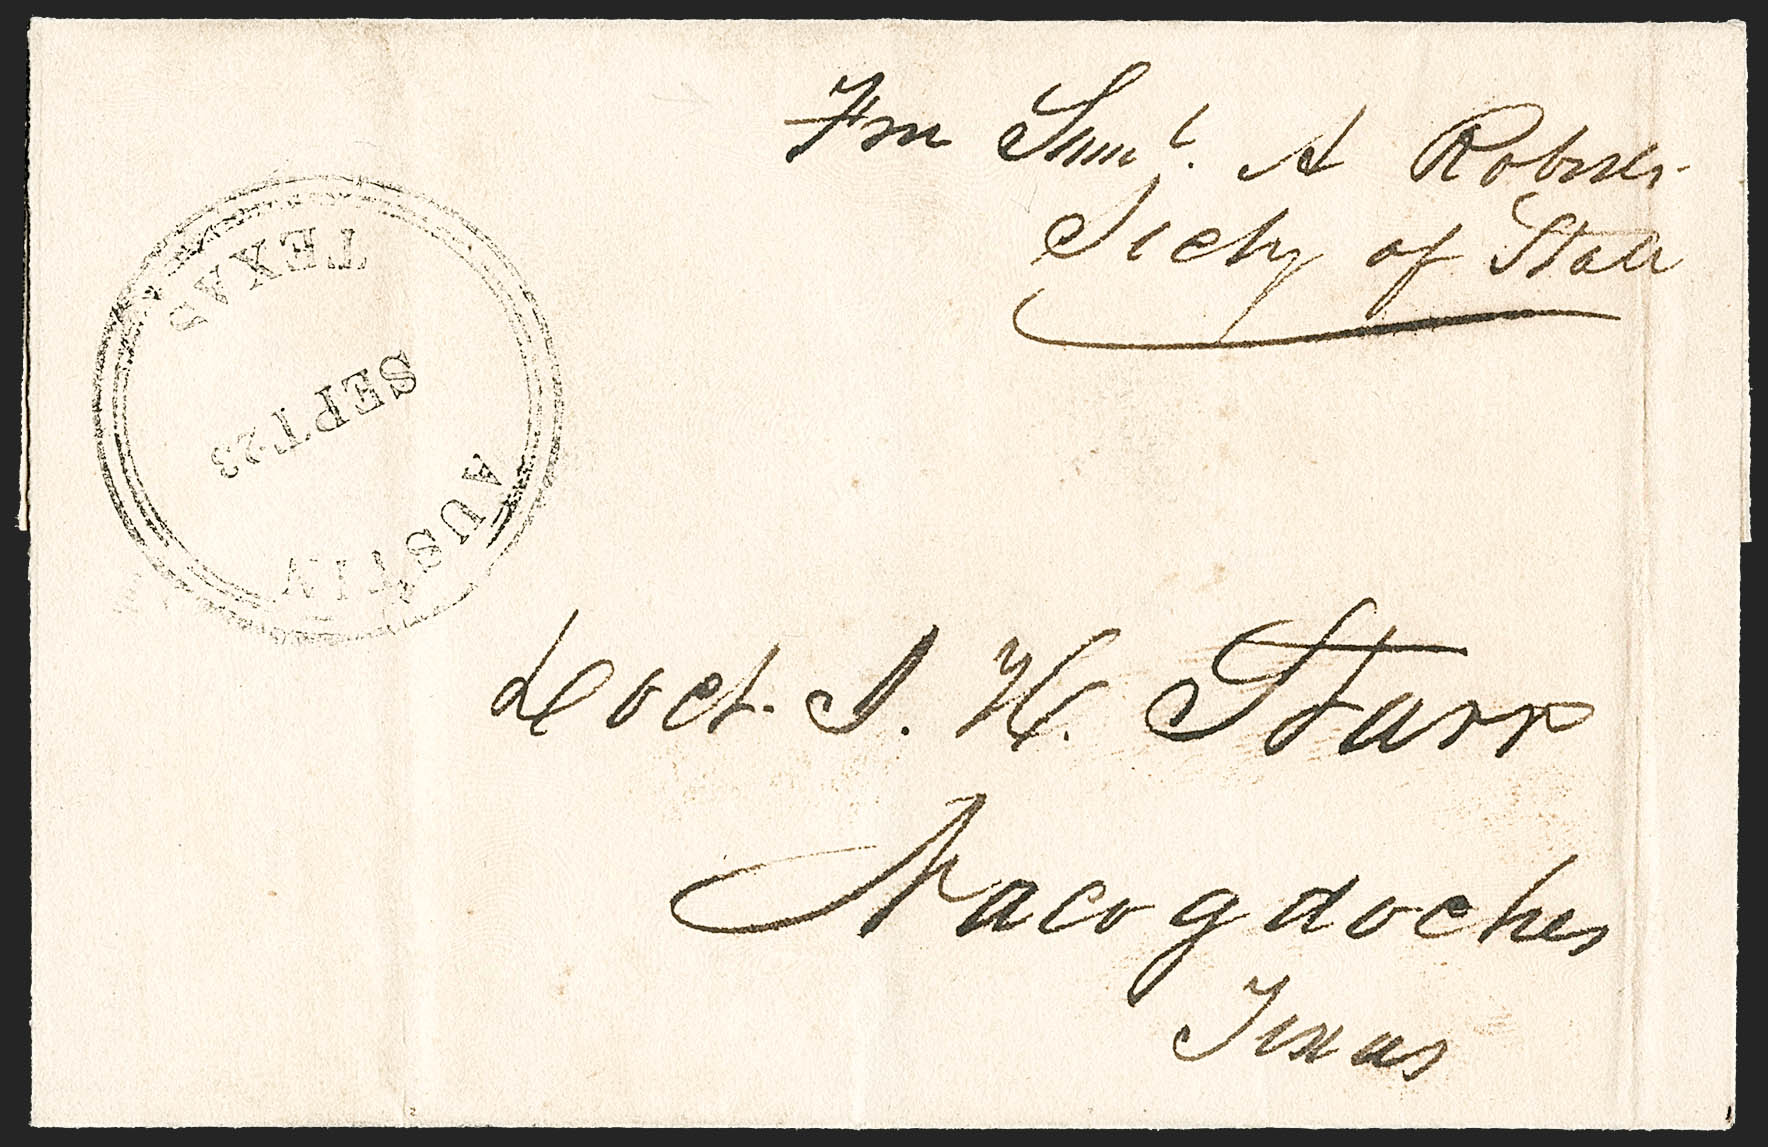 Fm Saml. A Roberts
Secty of State
AUSTIN
SEPT 23
TEXAS
Doct. J. H. Starr
Nacogdoches
Texas